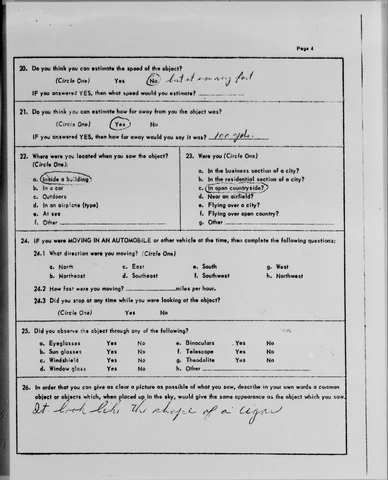 Page 4
20. Do you think you can estimate the speed of the object?
(Circle One) Yes No but it was very fast
IF you answered YES, then what speed would you estimate?
21. Do you think you can estimate how far away from you the object was?
(Circle One) Yes No
IF you answered YES, then how far away would you say it was? 100 yds.
22. Where were you located when you saw the object?
(Circle One):
a. Inside a building
b. In a car
c. Outdoors
d. In an airplane (type)
e. At sea
f. Other
23. Were you (Circle One)
a. In the business section of a city?
b. In the residential section of a city?
c. In open countryside?
d. Near an airfield?
e. Flying over a city?
f. Flying over open country?
g. Other
24. IF you were MOVING IN AN AUTOMOBILE or other vehicle at the time, then complete the following questions:
24.1 What direction were you moving? (Circle One)
a. North c. East e. South g. West
b. Northeast d. Southeast f. Southwest h. Northwest
24.2 How fast were you moving? miles per hour.
24.3 Did you stop at any time while you were looking at the object?
(Circle One) Yes No
25. Did you observe the object through any of the following?
a. Eyeglasses Yes No e. Binoculars Yes No
b. Sun glasses Yes No f. Telescope Yes No
c. Windshield Yes No g. Theodolite Yes No
d. Window glass Yes No h. Other
26. In order that you can give as clear a picture as possible of what you saw, describe in your own words a common
object or objects which, when placed up in the sky, would give the same appearance as the object which you saw.
It look like the shape of a cigar